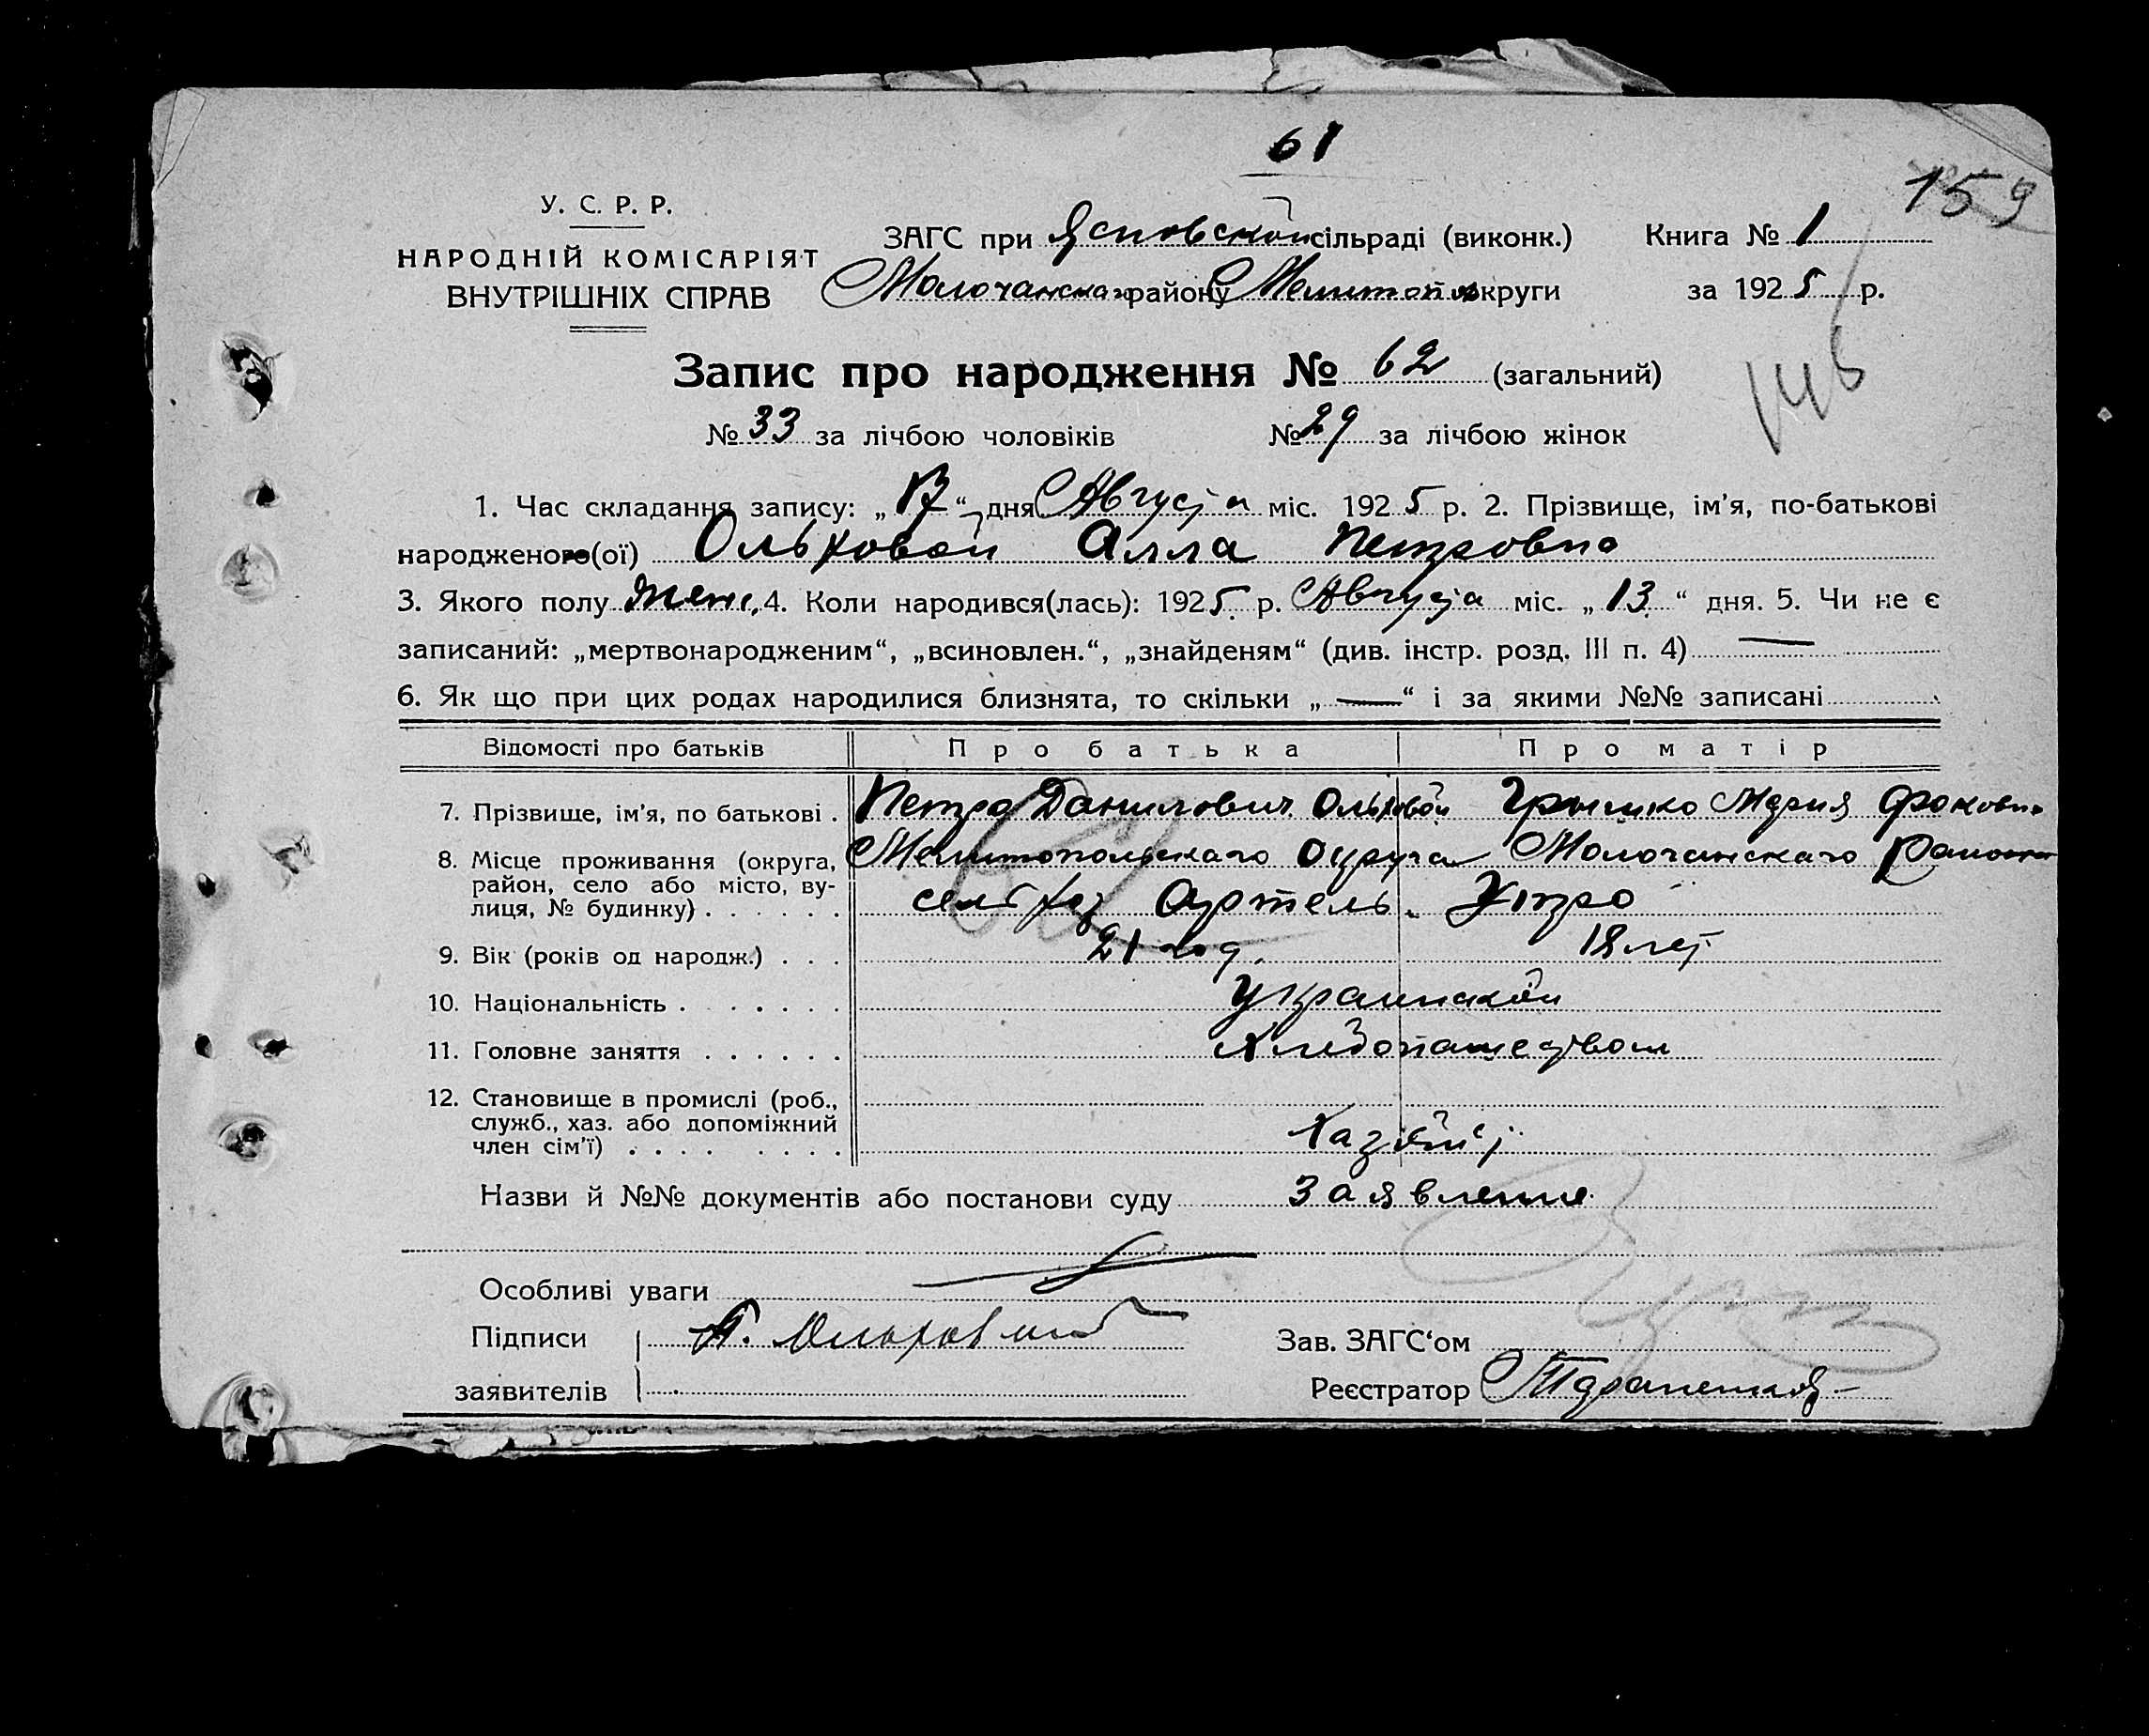 61
159
У. С. Р. Р.
НАРОДНІЙ КОМІСАРІЯТ
ВНУТРІШНІХ СПРАВ
ЗАГС при сільраді (виконк.) Книга № 1
району округи за 1925 р.
146
Запис про народження № 62 (загальний)
№ 33 за лічбою чоловіків № 29 за лічбою жінок
1. Час складання запису: „17“ дня Августа міс. 1925 р. 2. Прізвище, ім'я, по-батькові
народженого(ої) Ольховой Алла Петровна
3. Якого полу Женс. 4. Коли народився(лась): 1925 р. Августа міс. „13“ дня. 5. Чи не є
записаний: „мертвонародженим“, „всиновлен.“, „знайденям“ (див. інстр. розд. III п. 4) —
6. Як що при цих родах народилися близнята, то скільки „—“ і за якими №№ записані
Відомості про батьків Про батька Про матір
7. Прізвище, ім'я, по батькові . Петро Данилович Ольховой Грышко Мария Фоковна
8. Місце проживання (округа, Мелитопольскаго Округа Молочанскаго Района
район, село або місто, ву-
лиця, № будинку) . . . . . . сельхоз Артель Утро
9. Вік (років од народж.) . . . 21 год. 18 лет
10. Національність . . . . . . Украинской
11. Головне заняття . . . . . . Хлебопашеством
12. Становище в промислі (роб.,
служб., хаз. або допоміжний
член сім'ї) . . . . . . . . Хазяйст.
Назви й №№ документів або постанови суду Заявление
Особливі уваги
Підписи П. Зав. ЗАГС‘ом
заявителів Реєстратор